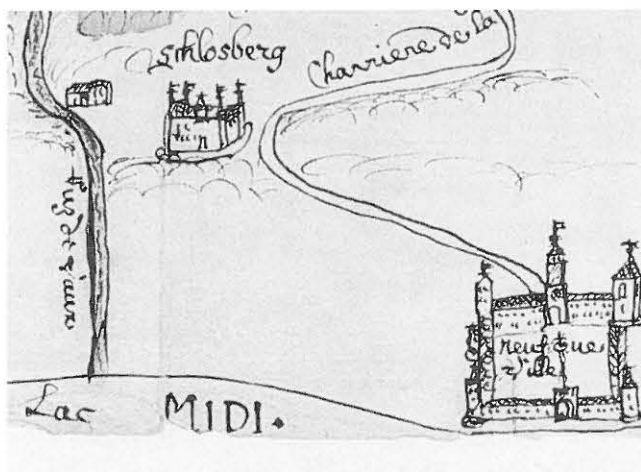 Schlosberg
Charriere de la
Ruz de vaux
neufue
ville
Lac MIDI.